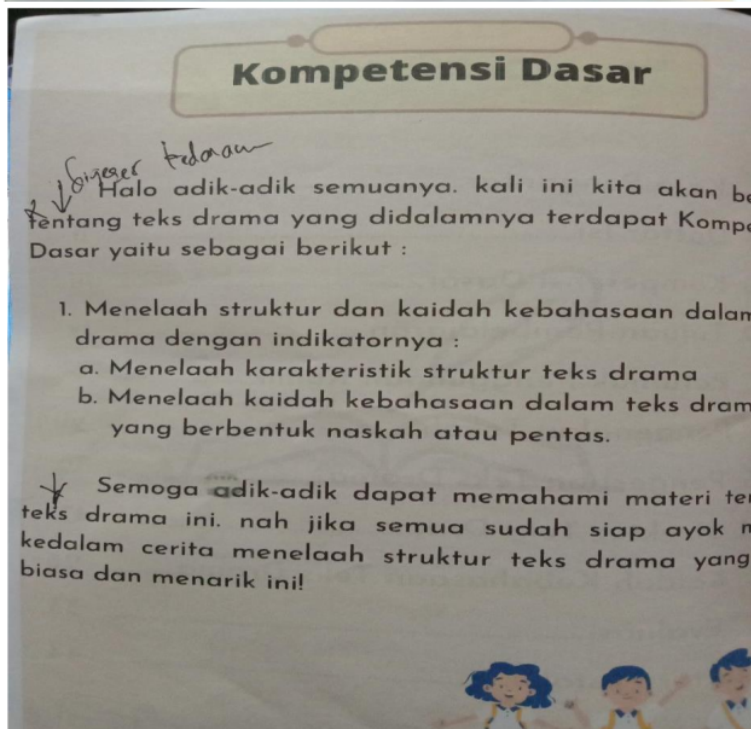 Kompetensi Dasar
digeser kedalam
Halo adik-adik semuanya. kali ini kita akan be
tentang teks drama yang didalamnya terdapat Kompe
Dasar yaitu sebagai berikut :
1. Menelaah struktur dan kaidah kebahasaan dalam
drama dengan indikatornya :
a. Menelaah karakteristik struktur teks drama
b. Menelaah kaidah kebahasaan dalam teks dram
yang berbentuk naskah atau pentas.
Semoga adik-adik dapat memahami materi te
teks drama ini. nah jika semua sudah siap ayok m
kedalam cerita menelaah struktur teks drama yang
biasa dan menarik ini!